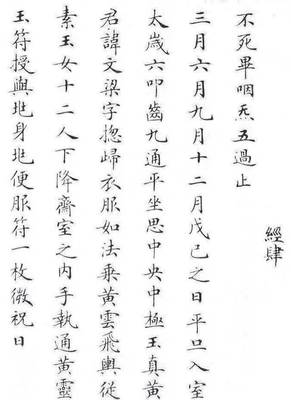 不死畢咽炁五過止
經肆
三月六月九月十二月戊己之日平旦入室
太歲六叩齒九通平坐思中央中極玉真黃
君諱文梁字揔歸衣服如法乘黃雲飛輿從
素玉女十二人下降齋室之内手執通黃靈
玉符授與地身地便服符一枚微祝曰